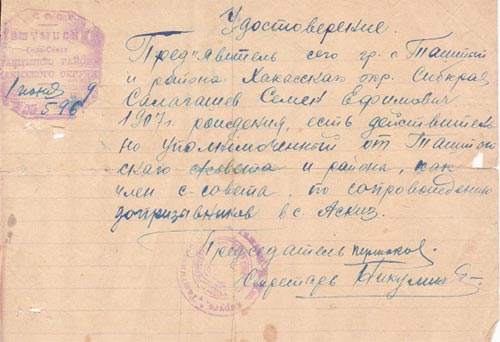 С.Ф.С.Р.
Сель-Совет
1 июня 9
№ 596
Удостоверение.
Пред"явитель сего гр. с. Таштып
и района Хакасскаго окр. Сибкрая
Салагашев Семен Ефимович
1907 г. рождения, есть действитель
но уполномоченный от Таштып
скаго совета и района, как
член с-совета, по сопровождению
допризывников в с. Аскиз.
Председатель
Секретарь Пикулин